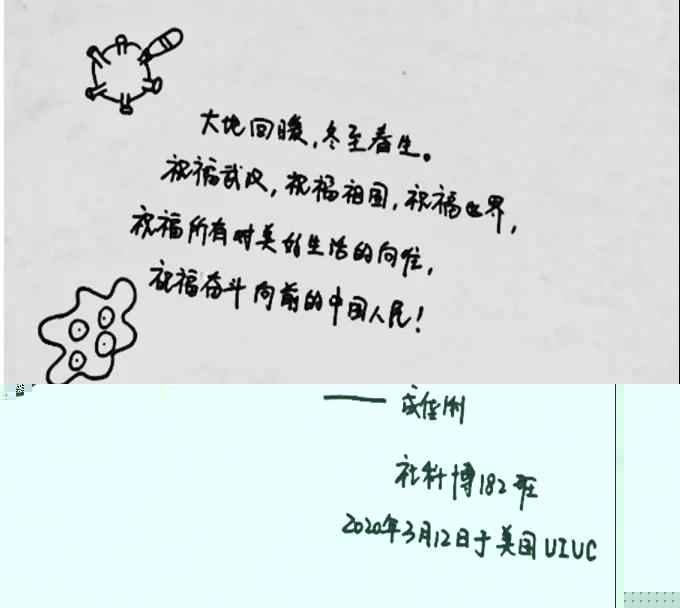 大地回暖，冬至春生。
祝福武汉，祝福祖国，祝福世界，
祝福所有对美好生活的向往，
祝福奋斗向前的中国人民！
社科博182班
2020年3月12日于美国UIUC